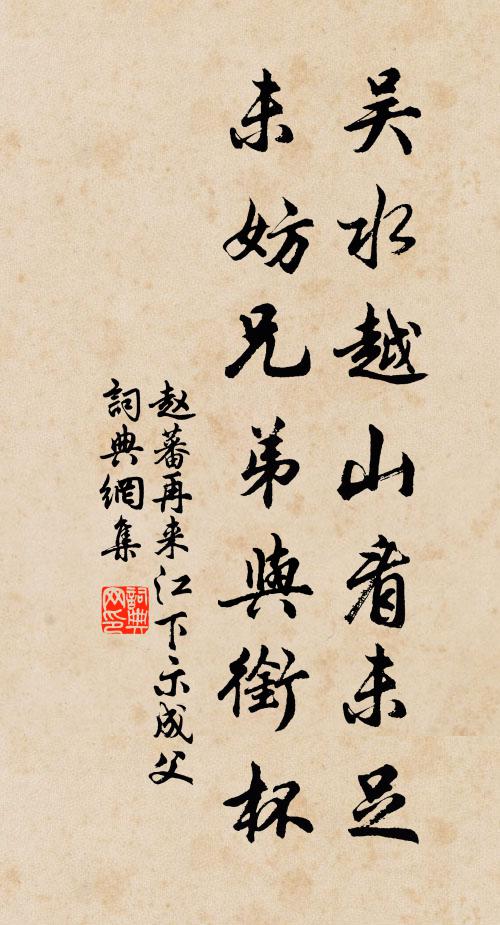 吴水越山看未足
未妨兄弟與銜杯
赵蕃再来江下示成父
詞典網集
詞典网印